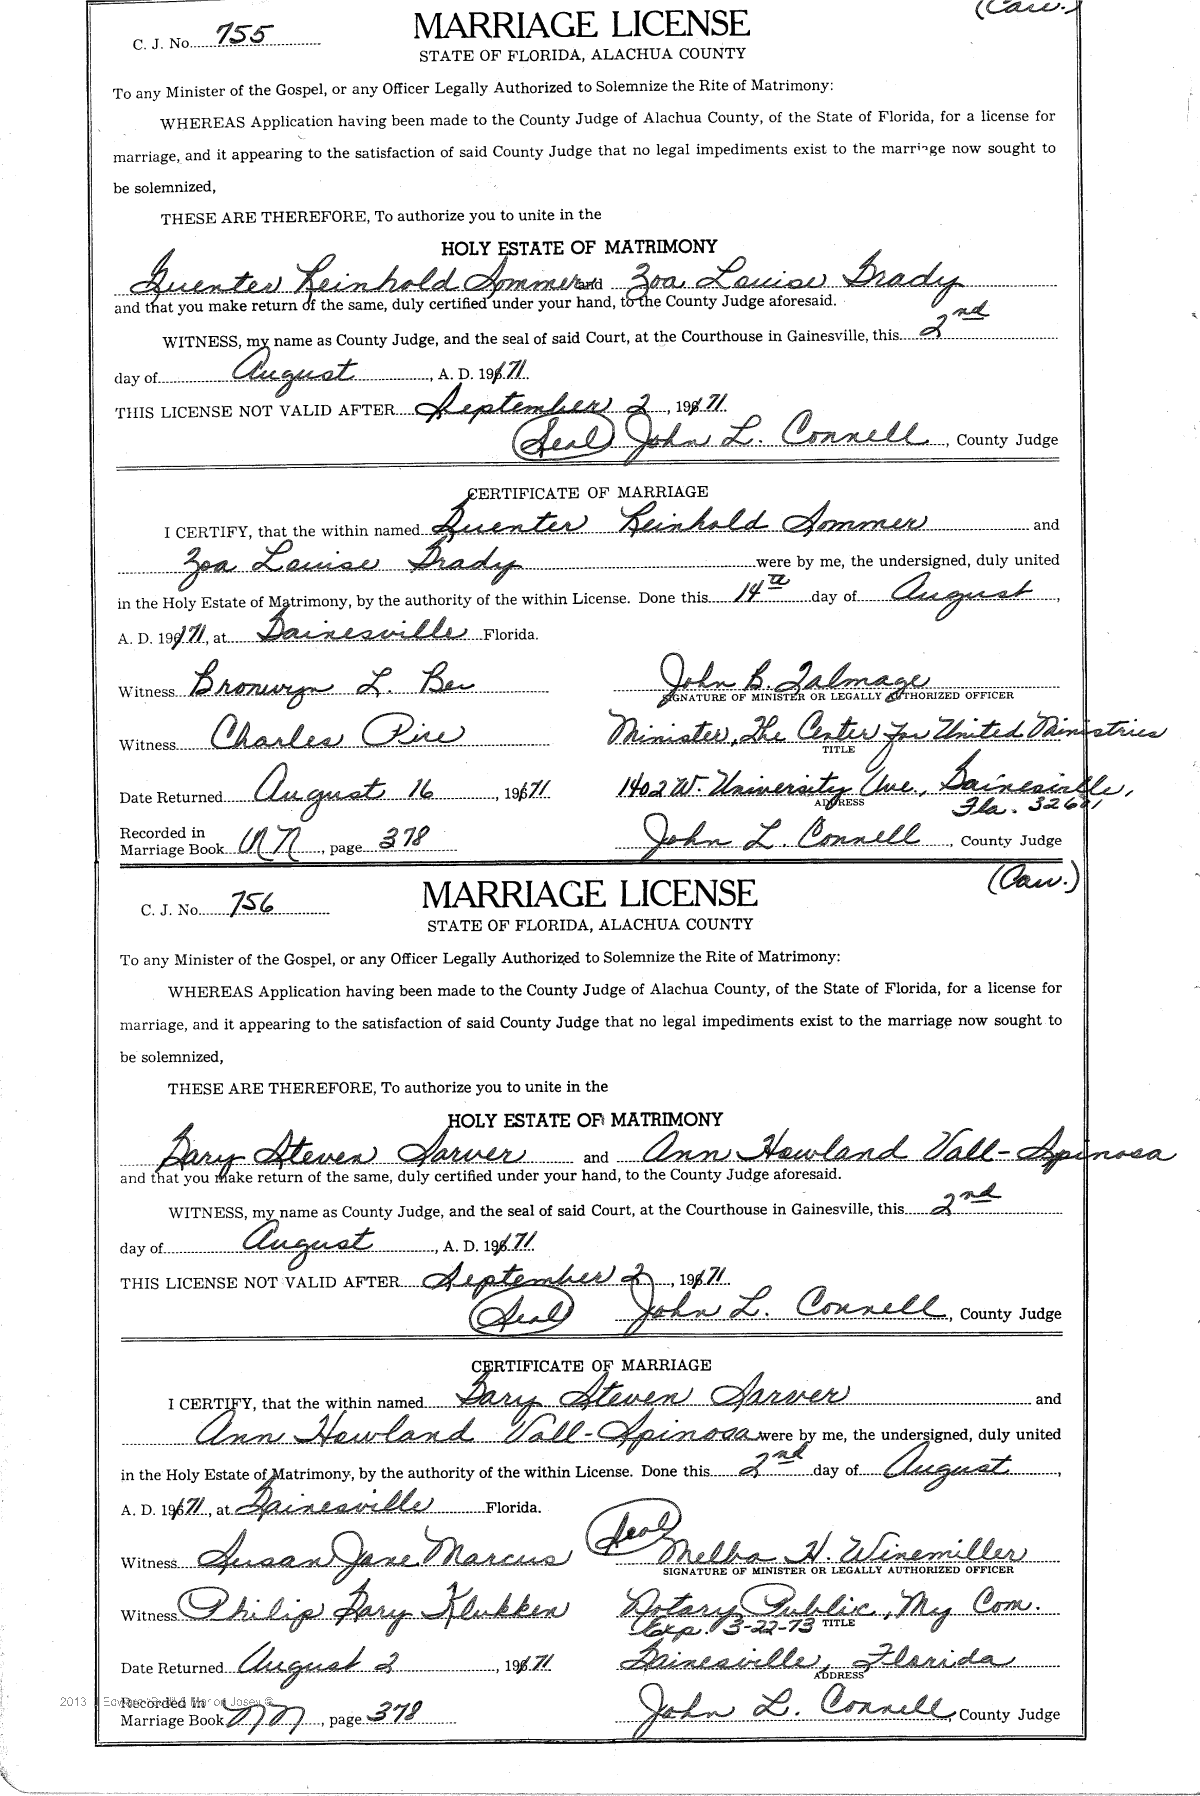 (Cau.)
C. J. No. 755 MARRIAGE LICENSE
STATE OF FLORIDA, ALACHUA COUNTY
To any Minister of the Gospel, or any Officer Legally Authorized to Solemnize the Rite of Matrimony:
WHEREAS Application having been made to the County Judge of Alachua County, of the State of Florida, for a license for
marriage, and it appearing to the satisfaction of said County Judge that no legal impediments exist to the marriage now sought to
be solemnized,
THESE ARE THEREFORE, To authorize you to unite in the
HOLY ESTATE OF MATRIMONY
Guenter Reinhold Sommer and Zoa Louise Grady
and that you make return of the same, duly certified under your hand, to the County Judge aforesaid.
WITNESS, my name as County Judge, and the seal of said Court, at the Courthouse in Gainesville, this 2nd
day of August, A. D. 1971.
THIS LICENSE NOT VALID AFTER September 2, 1971.
(Seal) John L. Connell, County Judge
CERTIFICATE OF MARRIAGE
I CERTIFY, that the within named Guenter Reinhold Sommer and
Zoa Louise Grady were by me, the undersigned, duly united
in the Holy Estate of Matrimony, by the authority of the within License. Done this 14th day of August,
A. D. 1971, at Gainesville Florida.
Witness Bronwyn L. John B. Talmage
SIGNATURE OF MINISTER OR LEGALLY AUTHORIZED OFFICER
Witness Charles Minister, The Center for United Ministries
TITLE
Date Returned August 16, 1971 1402 W. University Ave., Gainesville,
ADDRESS Fla. 32601
Recorded in
Marriage Book NN, page 378 John L. Connell, County Judge
(Cau.)
C. J. No. 756 MARRIAGE LICENSE
STATE OF FLORIDA, ALACHUA COUNTY
To any Minister of the Gospel, or any Officer Legally Authorized to Solemnize the Rite of Matrimony:
WHEREAS Application having been made to the County Judge of Alachua County, of the State of Florida, for a license for
marriage, and it appearing to the satisfaction of said County Judge that no legal impediments exist to the marriage now sought to
be solemnized,
THESE ARE THEREFORE, To authorize you to unite in the
HOLY ESTATE OF MATRIMONY
Gary Steven Sarver and Ann Howland Vall-Spinosa
and that you make return of the same, duly certified under your hand, to the County Judge aforesaid.
WITNESS, my name as County Judge, and the seal of said Court, at the Courthouse in Gainesville, this 2nd
day of August, A. D. 1971.
THIS LICENSE NOT VALID AFTER September 2, 1971.
(Seal) John L. Connell, County Judge
CERTIFICATE OF MARRIAGE
I CERTIFY, that the within named Gary Steven Sarver and
Ann Howland Vall-Spinosa were by me, the undersigned, duly united
in the Holy Estate of Matrimony, by the authority of the within License. Done this 2nd day of August,
A. D. 1971, at Gainesville Florida.
Witness Susan Jane Marcus (Seal) Melba H. Winemiller
SIGNATURE OF MINISTER OR LEGALLY AUTHORIZED OFFICER
Witness Philip Gary Klukken Notary Public, My Com.
Exp. 3-22-73 TITLE
Date Returned August 2, 1971 Gainesville, Florida
ADDRESS
2013
Recorded in
Marriage Book NN, page 378 John L. Connell, County Judge